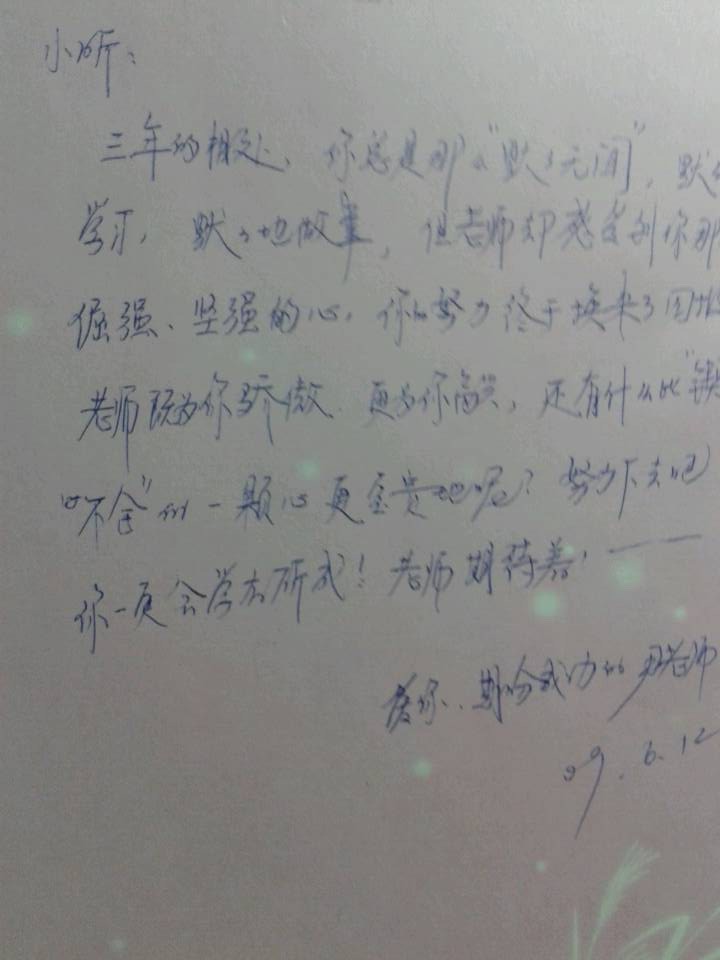 小昕：
三年的相处，你总是那么“默々无闻”，默
学习，默々地做事，但老师却感受到你那
倔强、坚强的心，你的努力终于换来了回报
老师既为你骄傲，更为你高兴，还有什么比“锲
“不舍”的一颗心更宝贵地呢？努力下去吧
你一定会学有所成！老师期待着！——
爱你、期盼成功的 老师
09.6.12